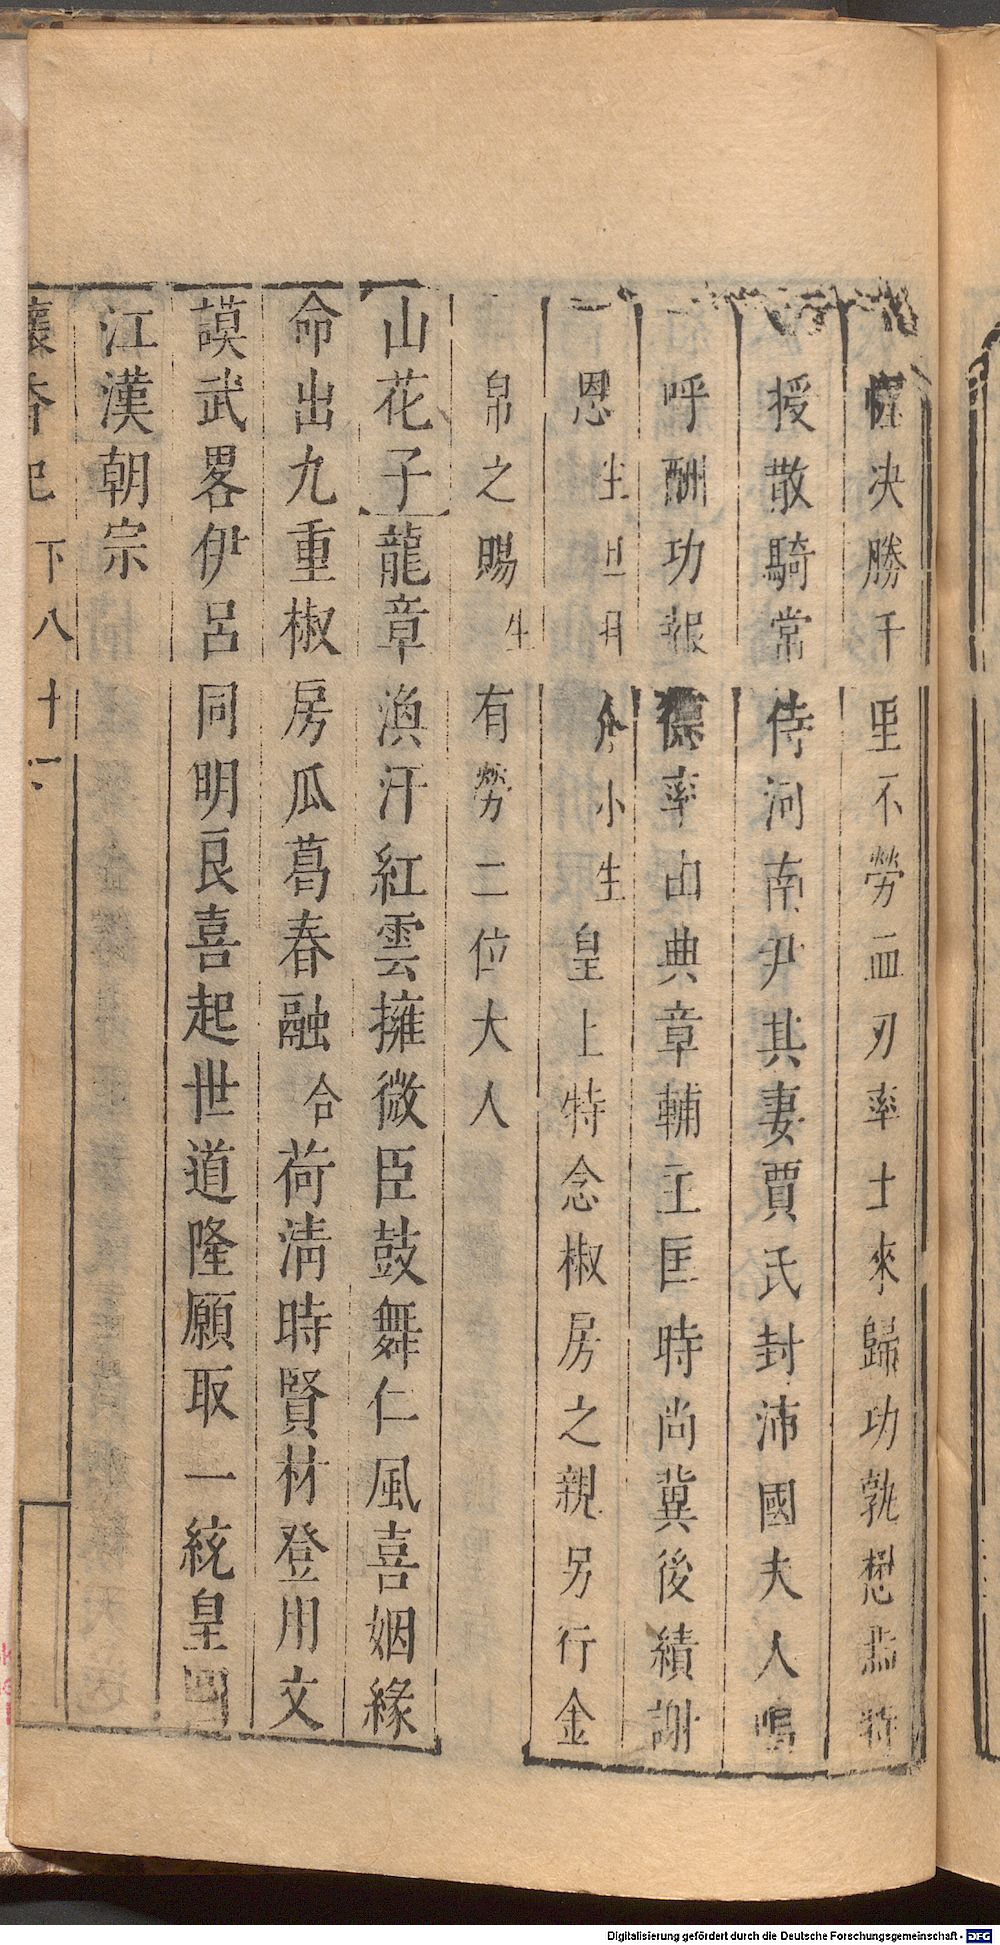 幄决勝千里不勞血刃率士來歸功孰懋焉特
授散騎常侍河南尹其妻賈氏封沛國夫人嗚
呼酬功報德率由典章輔主匡時尚冀後績謝
恩生旦丑介小生皇上特念椒房之親另行金
帛之賜生有勞二位大人
山花子龍章渙汗紅雲擁微臣鼓舞仁風喜姻緣
命出九重椒房瓜葛春融合荷清時賢材登用文
謨武畧伊呂同明良喜起世道隆願取一統皇圖
江漢朝宗
懷香記下八十一
Digitalisierung gefördert durch die Deutsche Forschungsgemeinschaft - DFG